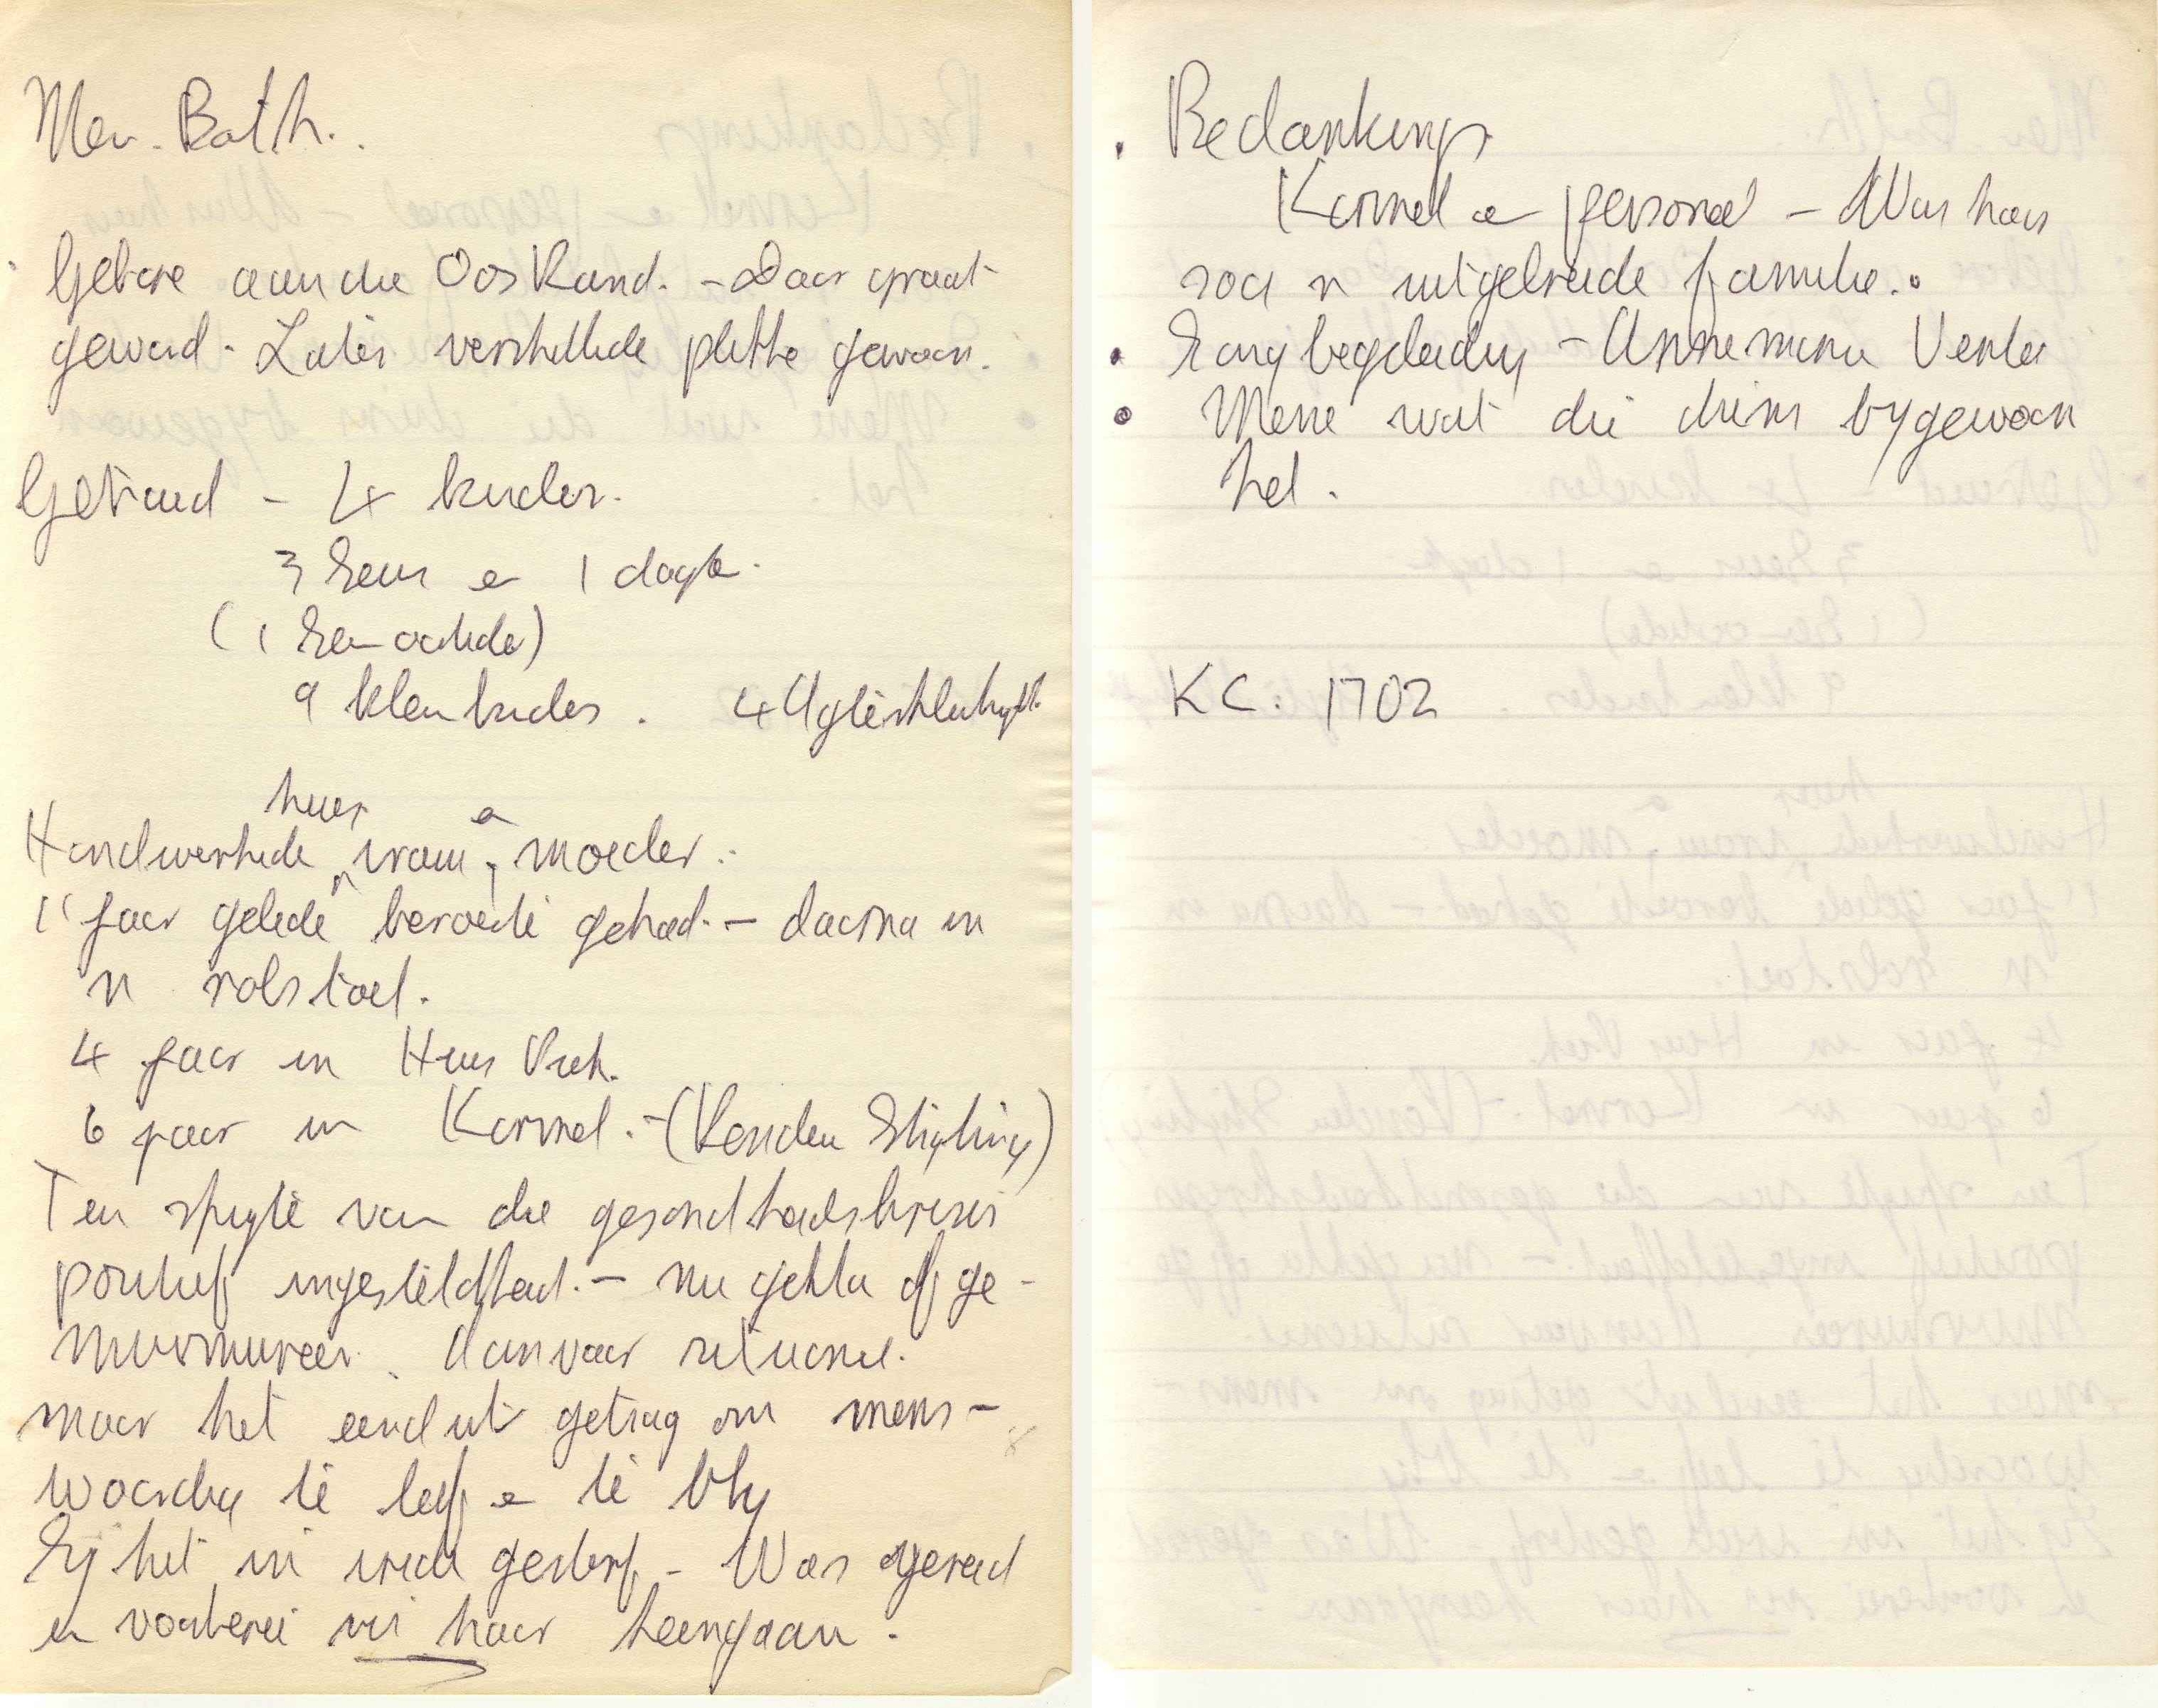 Mev. Both.
Gebore aan die Oos Rand. - Daar groot
geword. Later verskillende plekke gewoon.
Getroud - 4 kinders.
3 Seuns en 1 dogter.
(1 Seun oorlede)
9 kleinkinders. 4 Agterkleinkind
huis en
Handwerkende vrou, moeder.
11 jaar gelede beroerte gehad. - daarna in
n rolstoel.
4 jaar in Huis Vick.
6 jaar in Karmel. - (Stigting)
Ten spyte van die gesondheidskrisis
positief ingesteldheid. - nie gekla of ge-
murmureer. Aanvaar situasie.
maar het eerder uit getrag om mens-
waardig te leef en te bly
Sy het in vrede gesterf - Was gereed
en voorberei vir haar heengaan.
Bedankings
Karmel en personeel - Was haar
soos n uitgebreide familie.
Sang begeleiding - Annemarie Venter
Mense wat die diens bygewoon
het.
KC. 1702